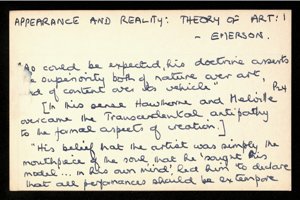 APPEARANCE AND REALITY: THEORY OF ART: 1
- EMERSON.
"As could be expected, his doctrine asserts
the superiority both of nature over art,
and of content over its vehicle"
[In his sense Hawthorne and Melville
overcame the Transcendental antipathy
to the formal aspects of creation.]
"His belief that the artist was simply the
mouthpiece of the soul, that he 'sought his
model... in his own mind' led him to declare
that all performances should be extempore